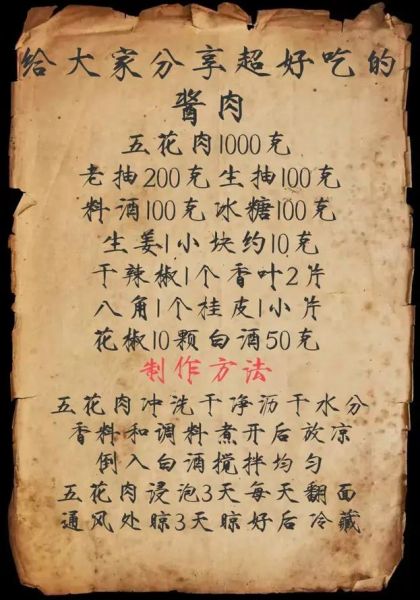 给大家分享超好吃的
酱肉
五花肉1000克
老抽200克生抽100克
料酒100克冰糖100克
生姜1小块约10克
干辣椒1个香叶2片
八角1个桂皮1小片
花椒10颗白酒50克
制作方法
五花肉冲洗干净沥干水分
香料和调料煮开后放凉
倒入白酒搅拌均匀
五花肉浸泡3天每天翻面
通风处晾3天晾好后冷藏